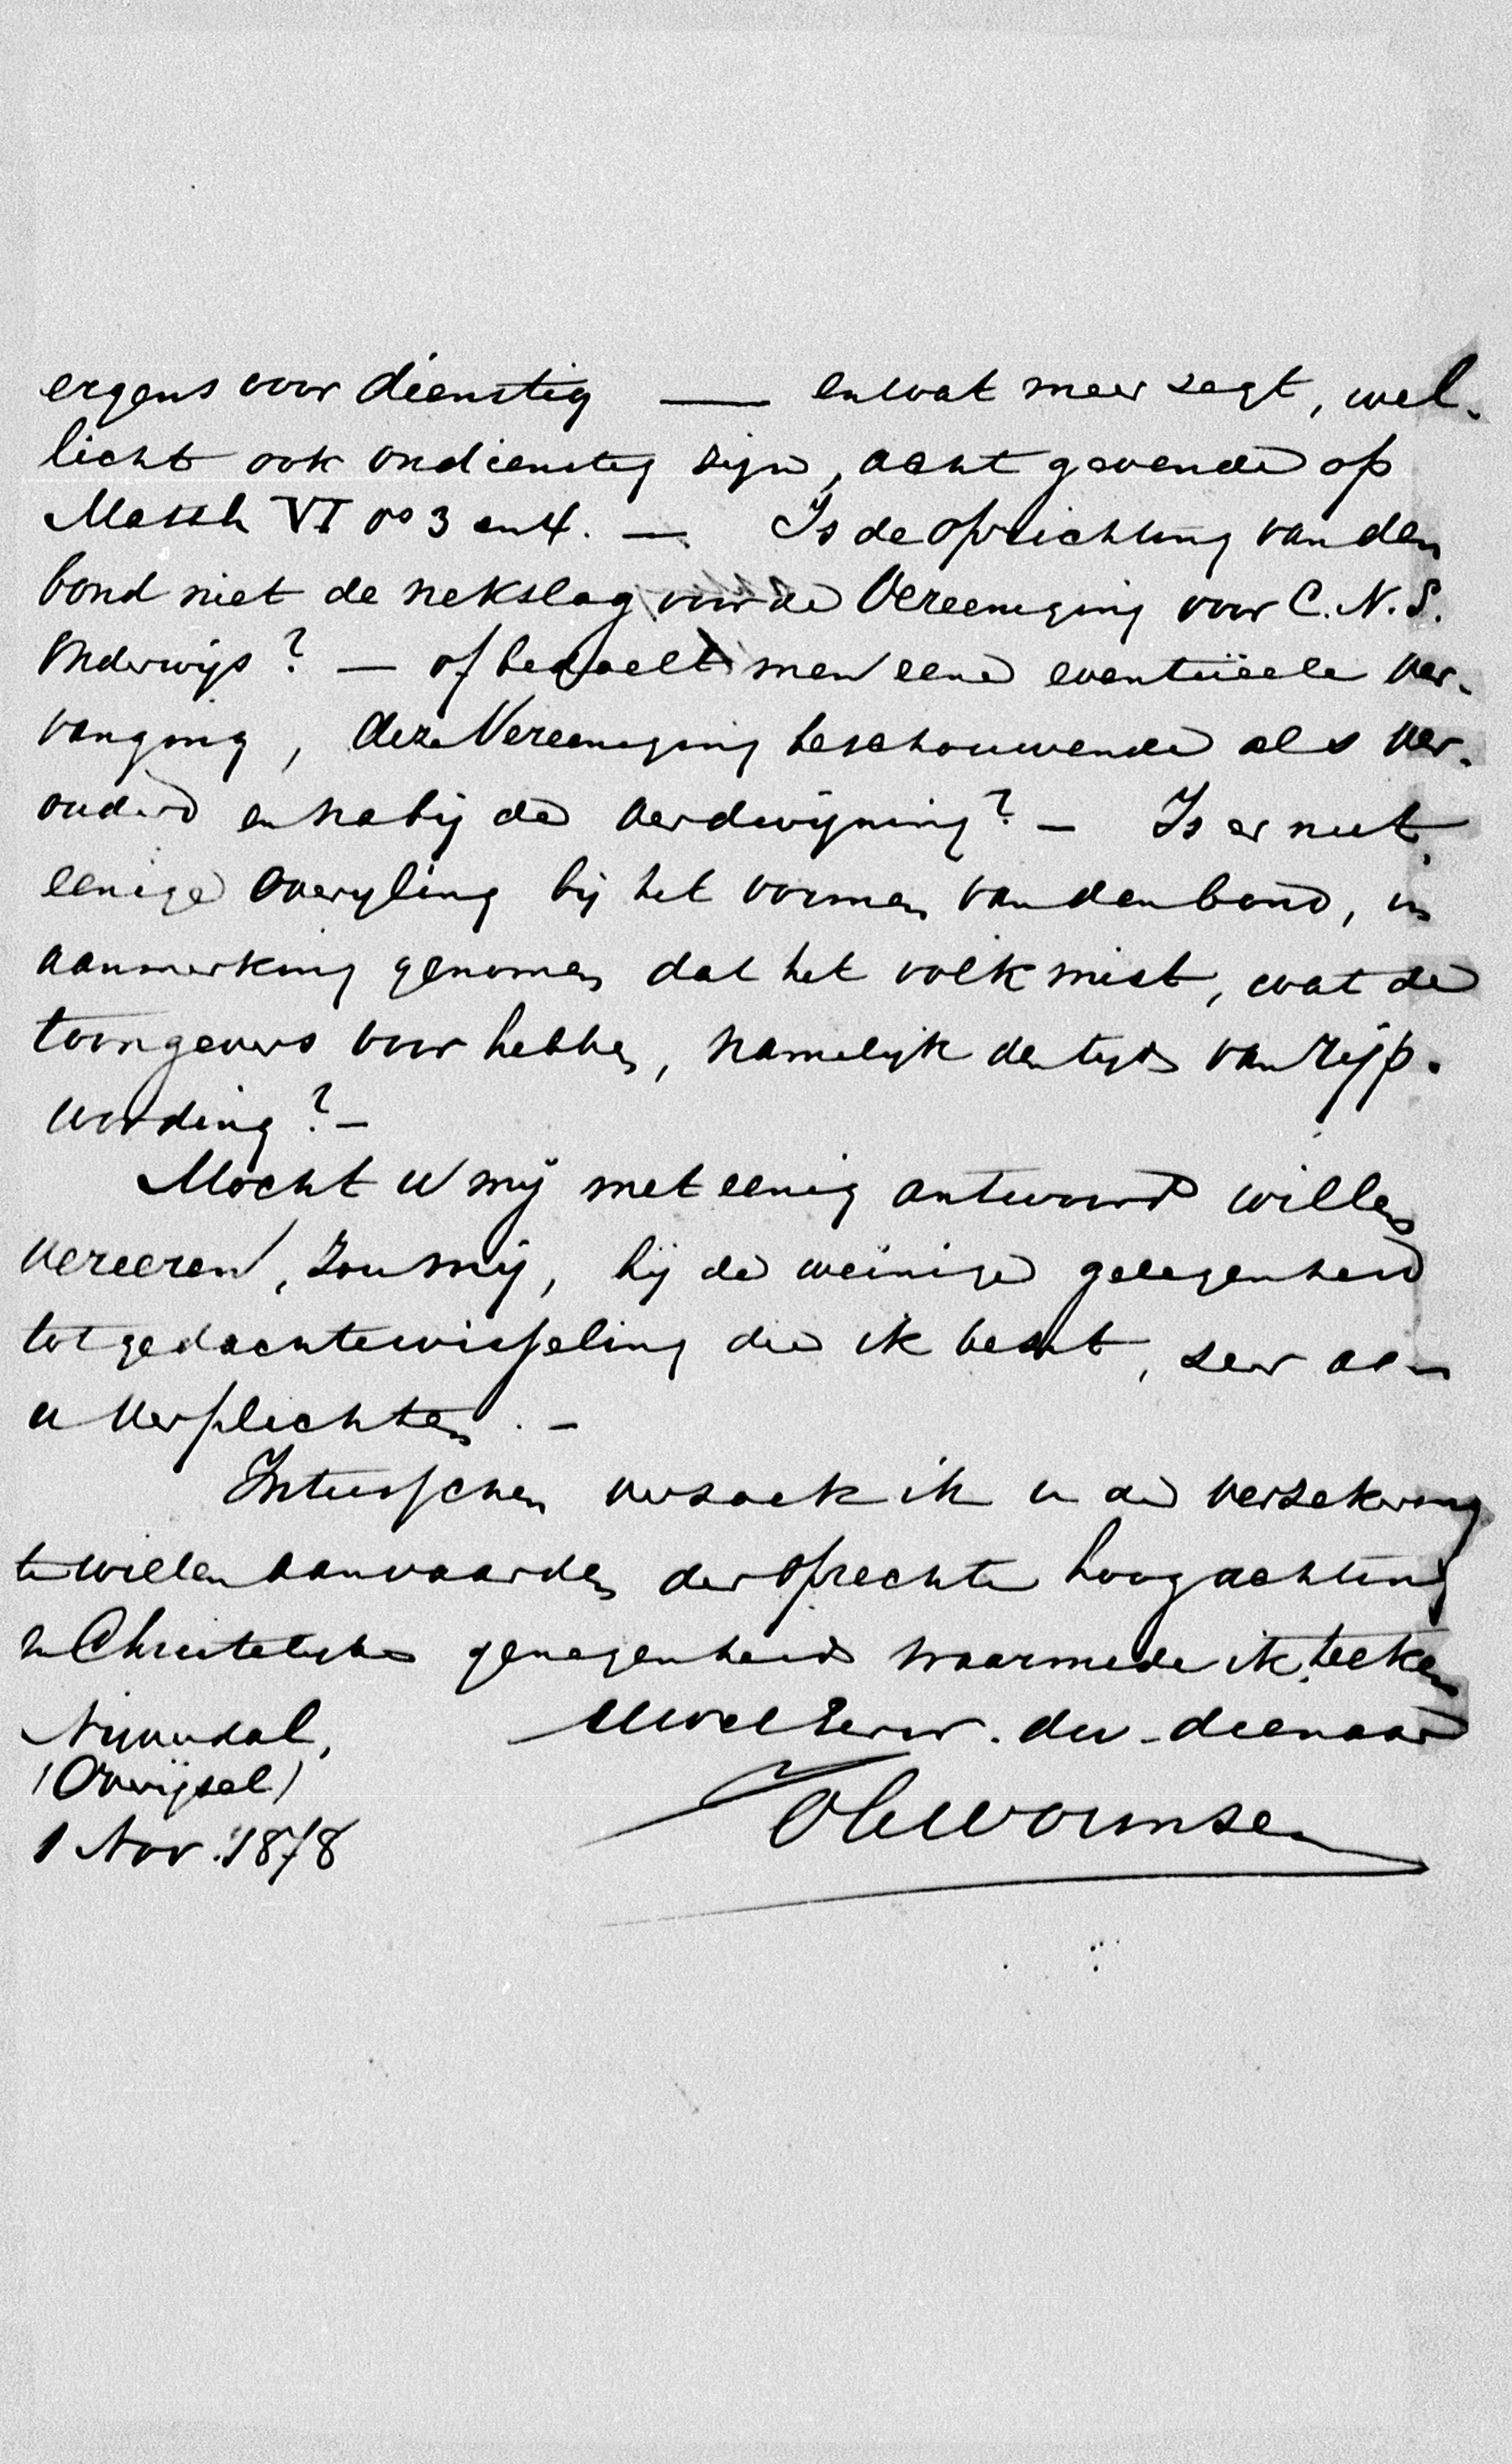 ergens voor dienstig — en wat meer zegt, wel-
licht ook ondienstig zijn, acht gevende op
Matth VI vs 3 en 4. — Is de oprichting van den
bond niet de nekslag voor de Vereeniging voor C. N. S.
Onderwijs? — of bedoelt men eene eventuëele ver-
vanging, deze Vereeniging beschouwende als ver-
ouderd en nabij de verdwijning? — Is er niet
eenige overyling bij het vormen van den bond, in
aanmerking genomen dat het volk mist, wat de
toongevers voor hebben, namelijk den tijd van rijp-
wording? —
Mocht U mij met eenig antwoord willen
vereeren, zou mij, bij de weinige gelegenheid
tot gedachtewisseling die ik bezit, zeer aan
u verplichten. —
Intusschen verzoek ik u de verzekering
te willen aanvaarden der oprechte hoogachting
en Christelijke genegenheid waarmede ik teeken
UwelEerw. dw. dienaar
Nijverdal,
(Overijsel)
1 Nov. 1878
Wormser